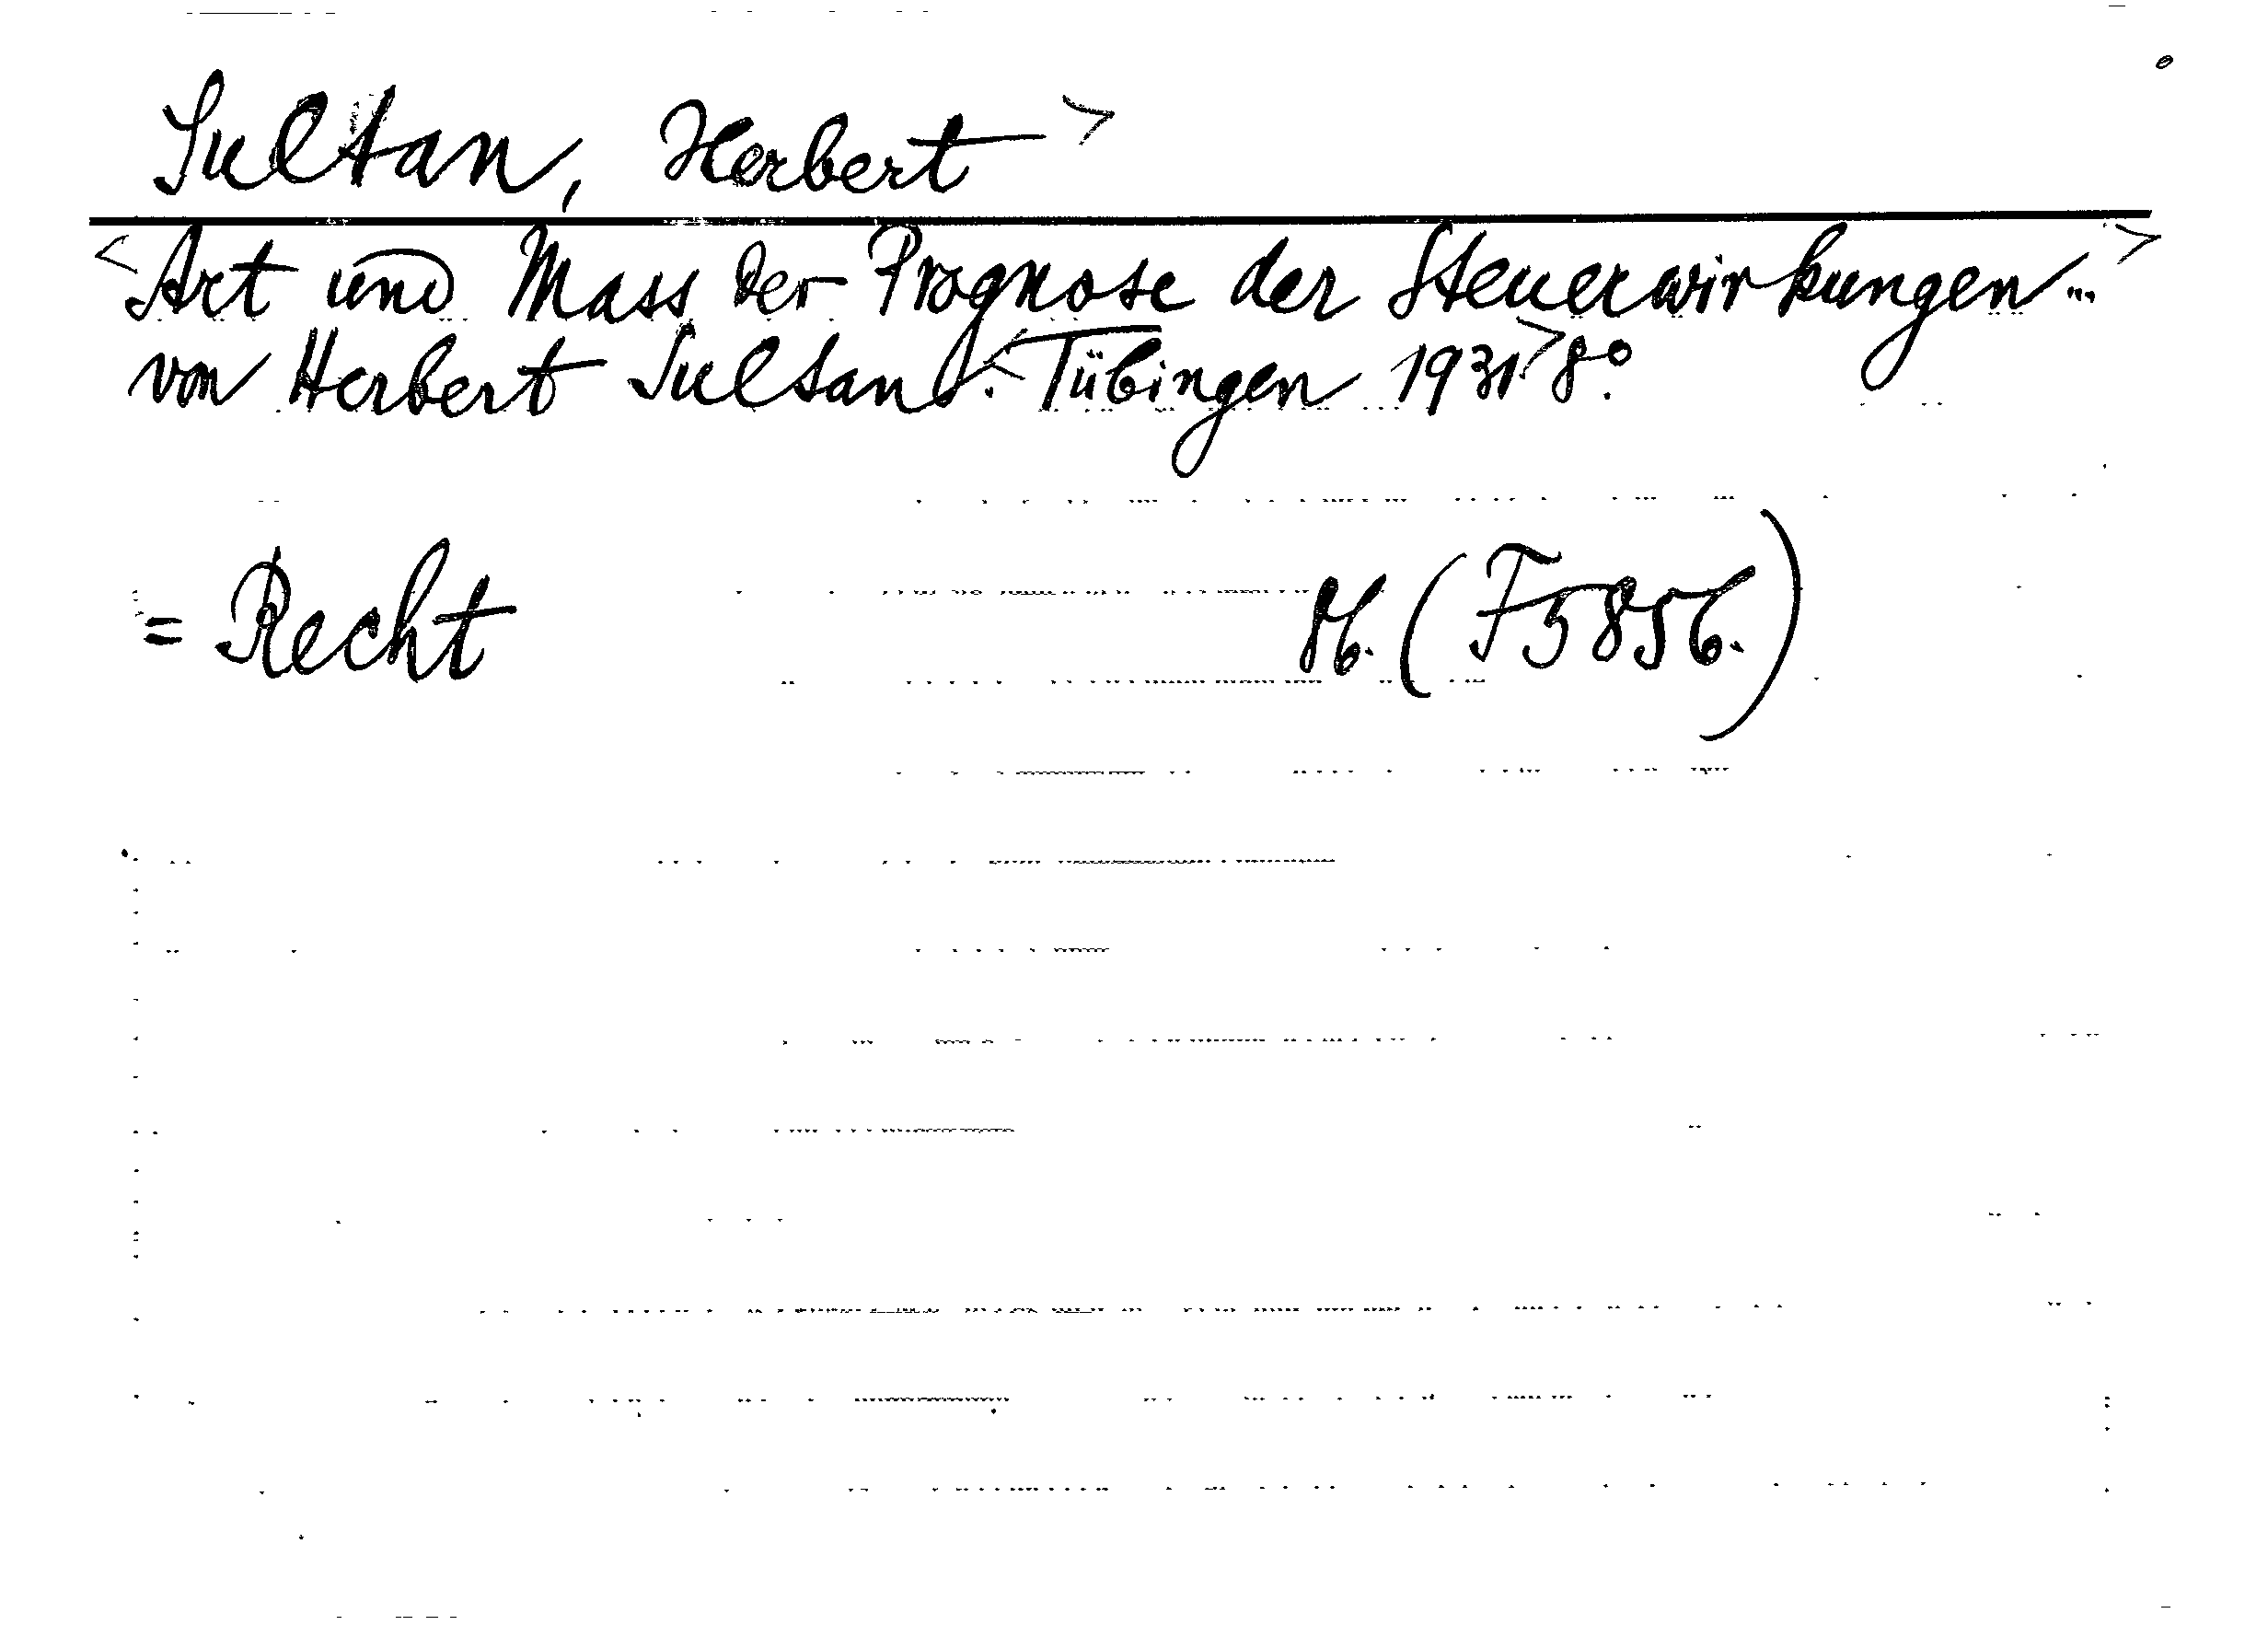 Sultan, Herbert >
<Art und Mass der Prognose der Steuerwirkungen...>
von Herbert Sultan. <Tübingen 1931> 8°.
= Recht (F5856.)